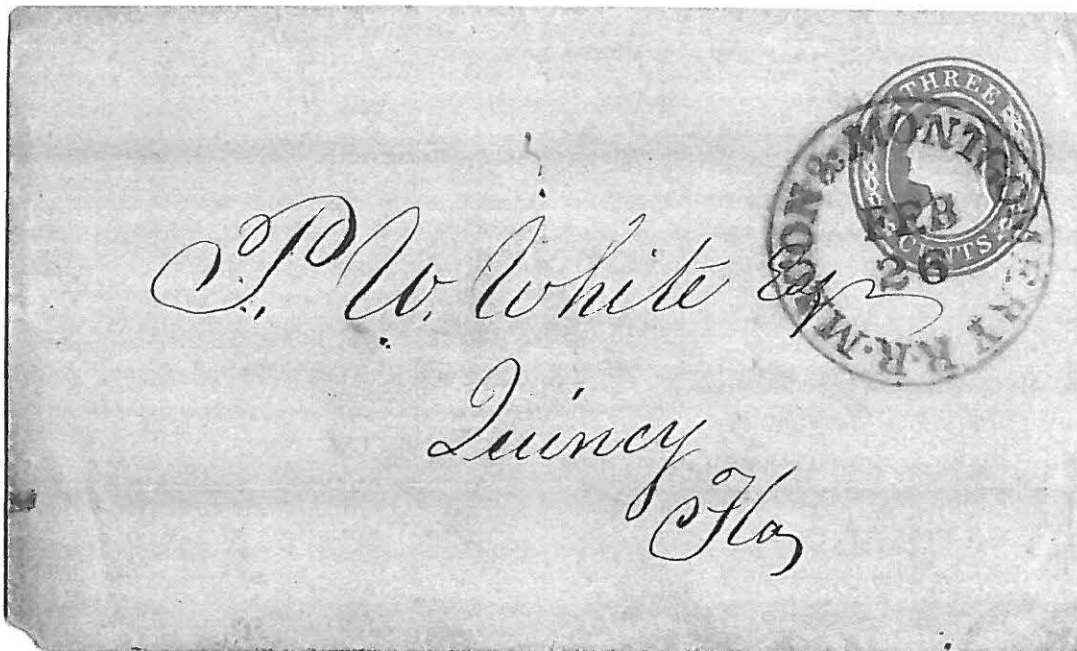 THREE
CENTS
MACON & MONTGOMERY R.R.
FEB
26
P. W. White Esq
Quincy
Fla